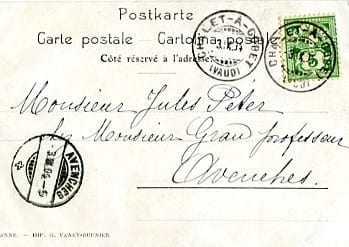 Postkarte
Carte postale · Cartolina postale
Côté réservé à l'adresse
CHALET-À-GOBET
(VAUD)
CHALET-À-GOBET
(VAUD)
Monsieur Jules Péter
Monsieur Grau professeur
Avenches.
AVENCHES
IMP. G. VANEY-BURNIER